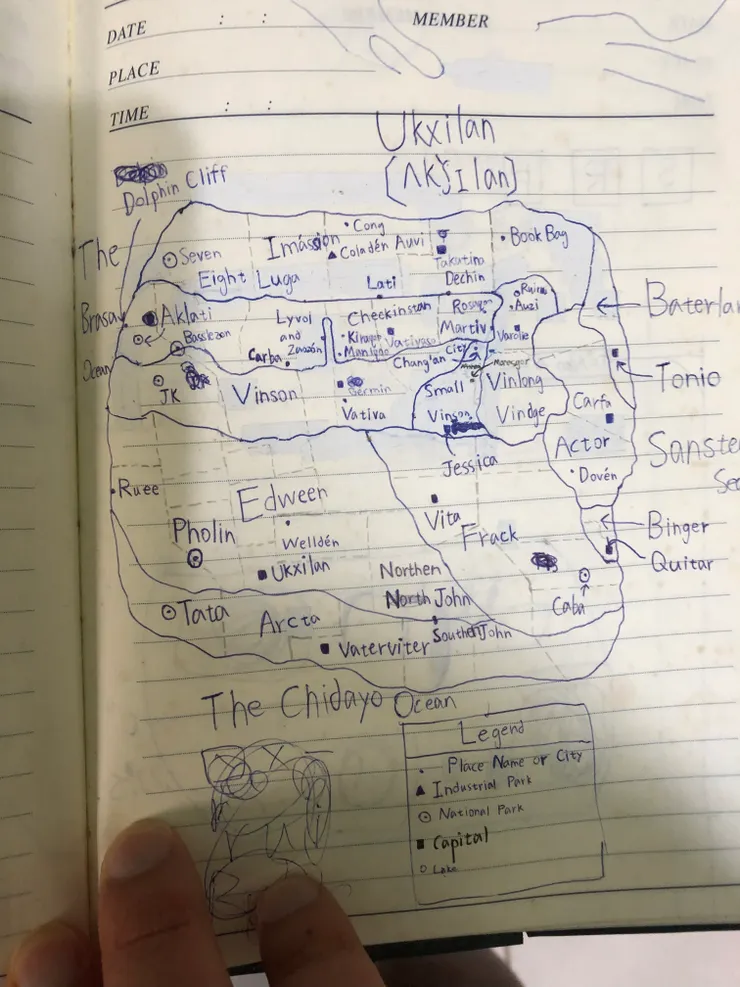 DATE : : MEMBER
PLACE
TIME : :
Ukxilan
[ɅKʂɪlan]
Dolphin Cliff
The
Brasay
Ocean
Cong
Seven
Imassion
Coladén Auvi
Takutino
Book Bag
Eight Luga
Lati
Dechin
Aklati
Lyvol
and
Zaazón
Checkinstan
Martiv
Auzi
Baterlan
Basslezon
Carba
Manigdo
Chang'an City
Varolie
Tonio
JK
Vinson
Germin
Vativa
Small
Vinson
Vinlong
Vindge
Carfa
Actor
Dovén
Sanster
Sea
Jessica
Ruee
Edween
Vita
Frack
Binger
Pholin
Welldén
Ukxilan
Quitar
Northen
North John
Caba
Tata
Arcta
Vaterviter
Southen John
The Chidayo Ocean
Legend
Place Name or City
Industrial Park
National Park
Capital
Lake